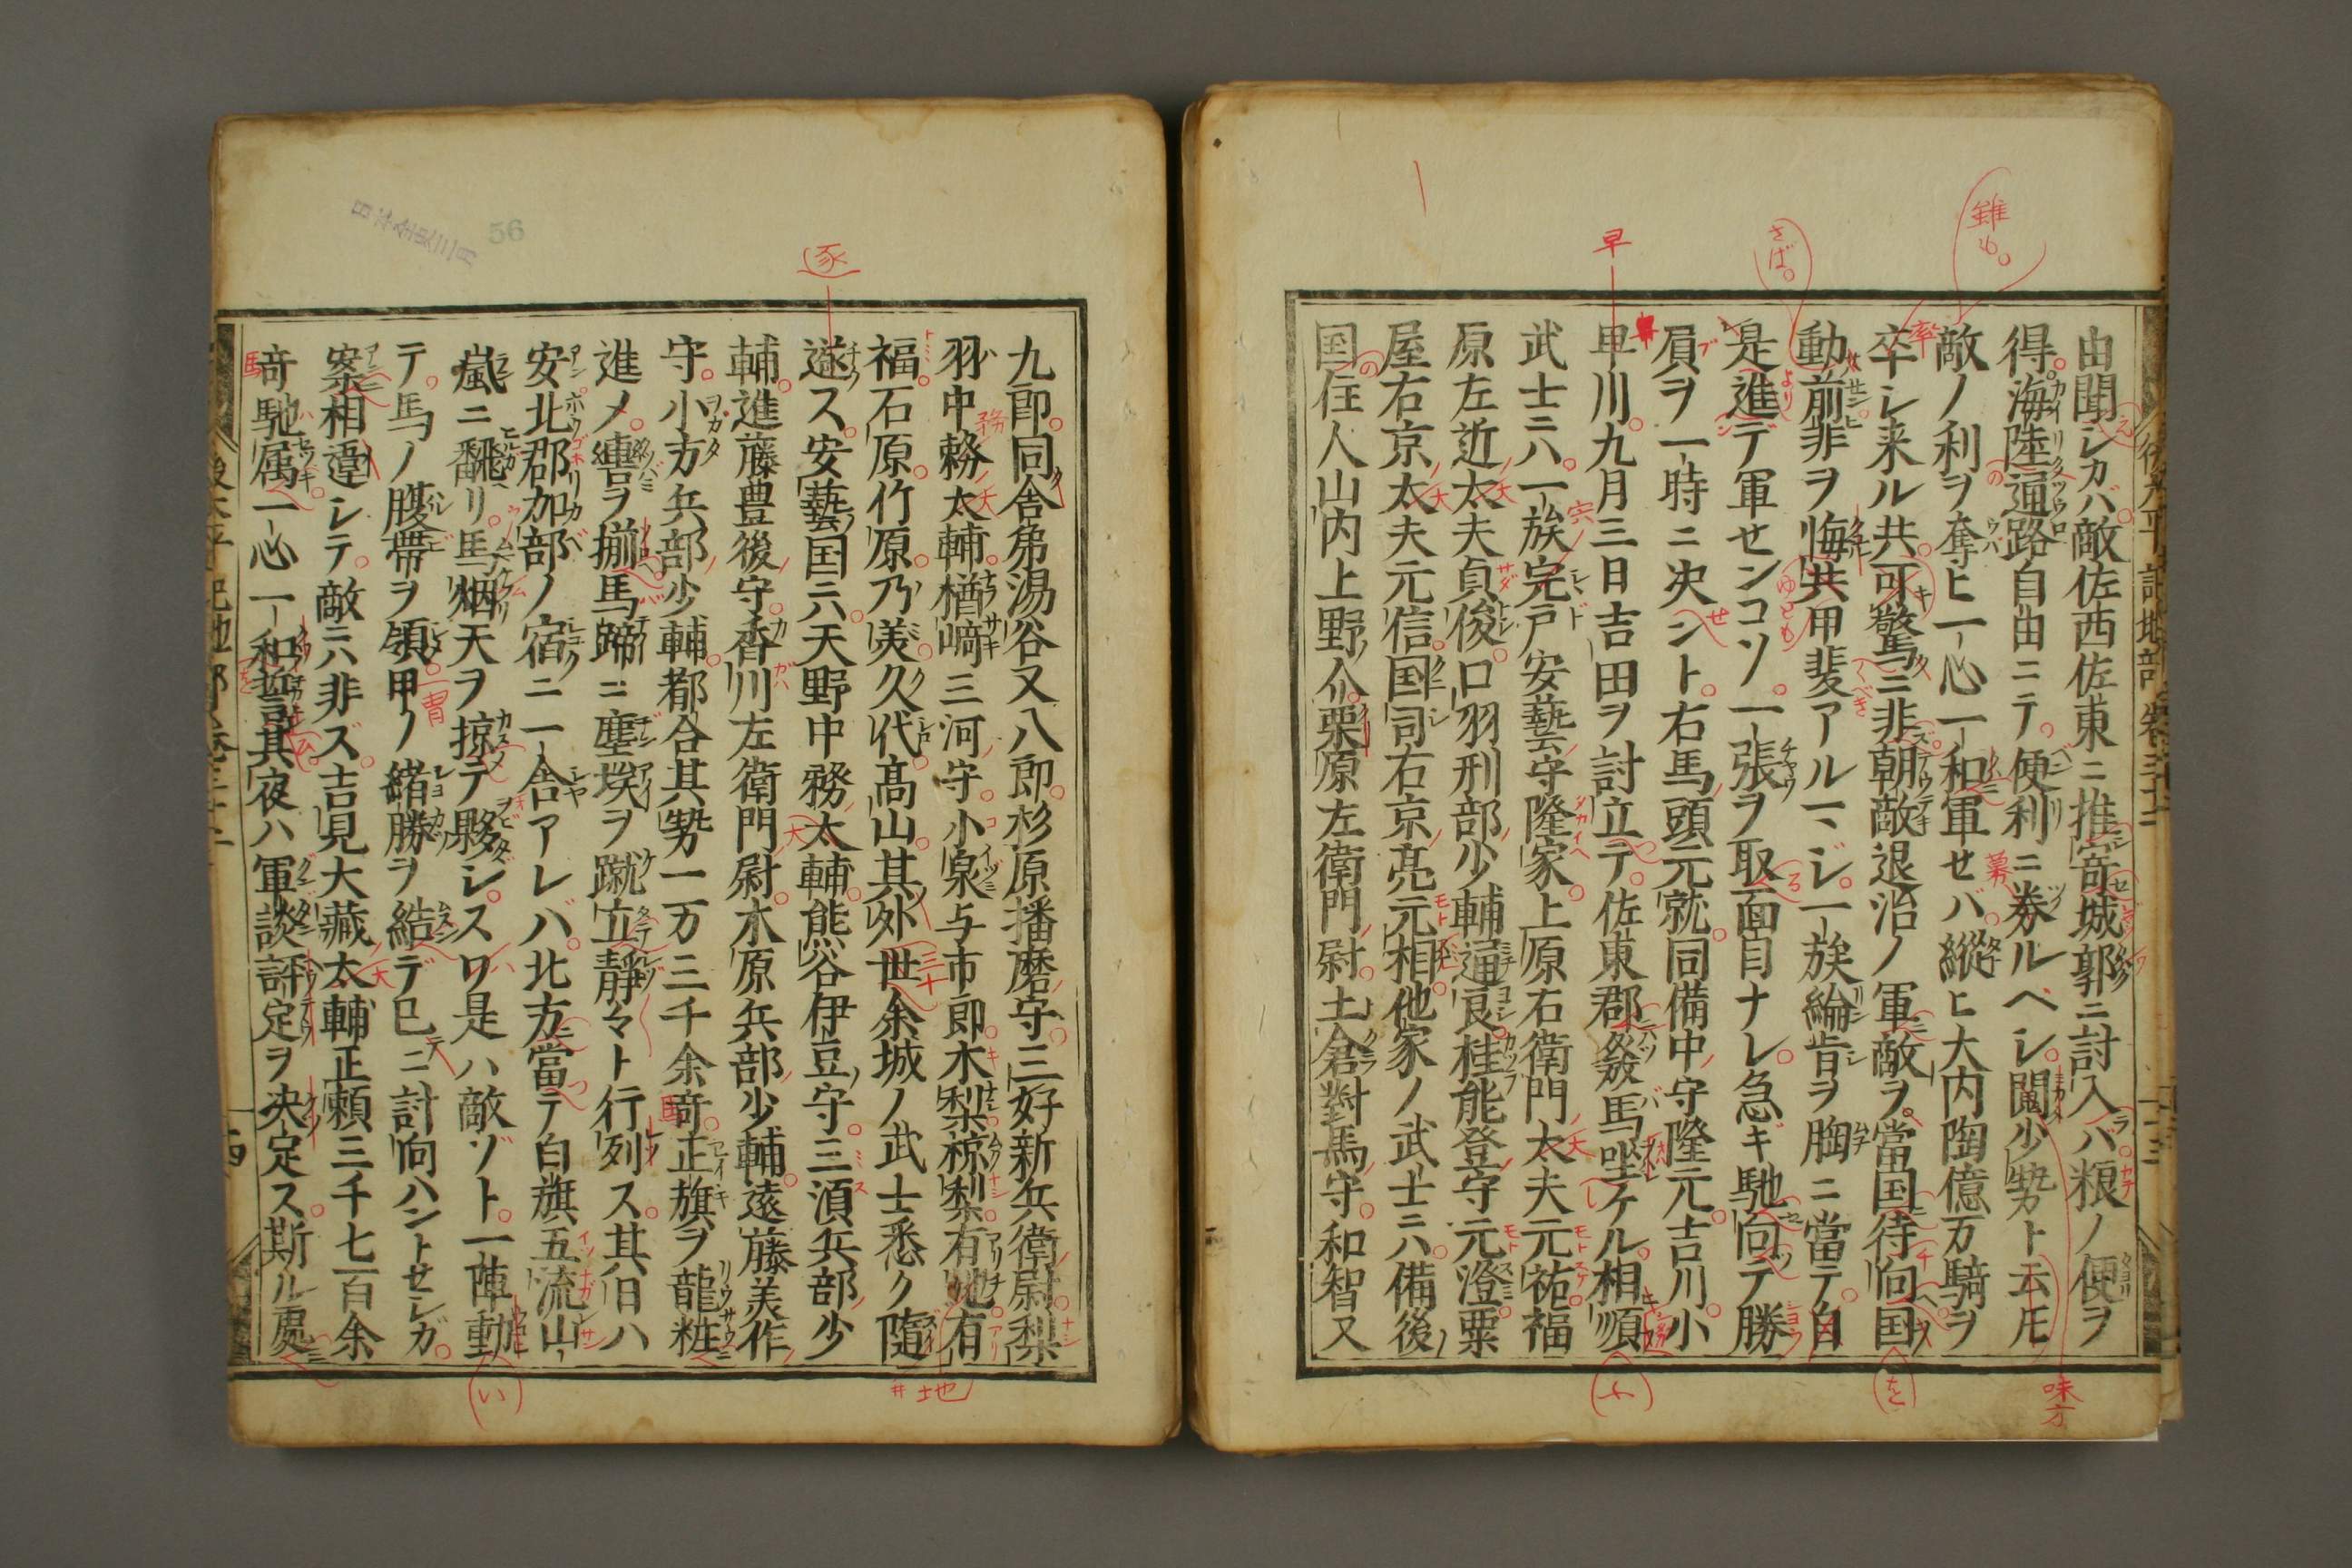 由聞レガバ敵佐西佐東ニ推寄城郭ニ討入バ粮ノ便ヲ
得海陸通路自由ニテ便利ニ券ルベシ闘少勢ト云㐧
敵ノ利ヲ奪ヒ一心一和軍セバ縦ヒ大内陶億万騎ヲ
卒シ来ル共可驚ニ非朝敵退治ノ軍敵ヲ當国待向国
動前非ヲ悔共甲斐アルマジ一族綸旨ヲ胸ニ當テ自
是進デ軍センコソ一張ヲ取面目ナレ急ギ馳向テ勝
屓ヲ一時ニ决ント右馬頭元就同備中守隆元吉川小
早川九月三日吉田ヲ討立テ佐東郡發馬坐ケル相順
武士ニハ一族完戸安藝守隆家上原右衛門太夫元祐福
原左近太夫貞俊口羽刑部少輔通良桂能登守元澄粟
屋右京太夫元信国司右京亮元相他家ノ武士ニハ備後
国住人山内上野介栗原左衛門尉土倉對馬守和智又
後太平記地部巻三十二
九郎同舎弟湯谷又八郎杉原播磨守三好新兵衛尉梨
羽中務太輔楢﨑三河守小泉与市郎木梨椋梨有地有
福石原竹原乃美久代髙山其外世余城ノ武士悉ク隨
遂ス安藝国ニハ天野中務太輔熊谷伊豆守三須兵部少
輔進藤豊後守香川左衛門尉木原兵部少輔遠藤美作
守小方兵部少輔都合其勢一万三千余﨑正旗ヲ龍粧
進メ轡ヲ揃馬蹄ニ塵埃ヲ蹴立静々ト行列ス其日ハ
安北郡加部ノ宿ニ一舎アレバ北方當テ白旗五流山
嵐ニ飜リ馬烟天ヲ掠テ夥シスワ是ハ敵ゾト一陣動
テ馬ノ腹帶ヲ領甲ノ緒勝ヲ結デ已ニ討向ハントセシガ
案相違シテ敵ニハ非ズ吉見大藏太輔正頼三千七百余
﨑馳属一心一和誓其夜ハ軍談評定ヲ决定ス斯ル處
56
雖も。
さば。
早
逐
味方
地